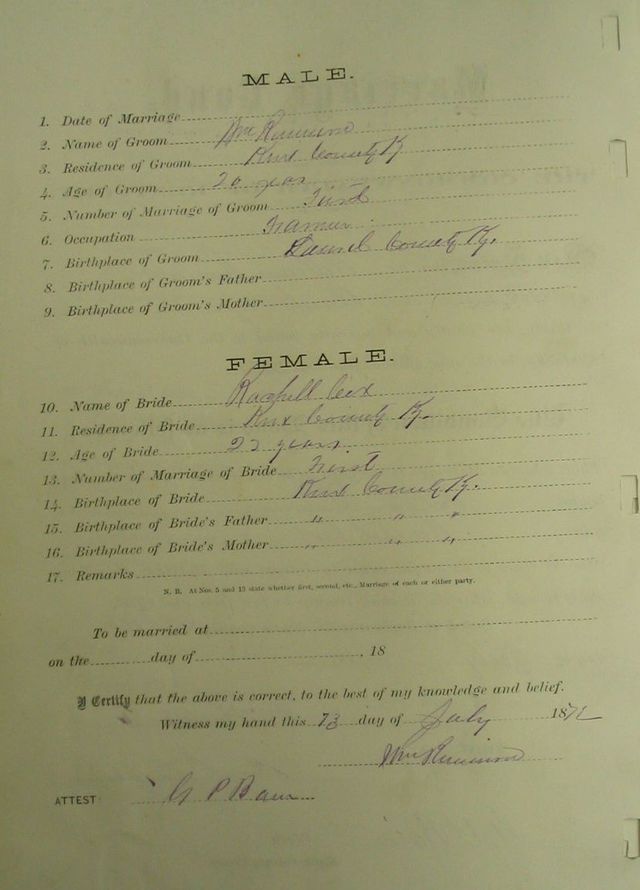 MALE.
1. Date of Marriage
2. Name of Groom Wm
3. Residence of Groom Knox County Ky
4. Age of Groom years
5. Number of Marriage of Groom First
6. Occupation Farmer
7. Birthplace of Groom Laurel County Ky.
8. Birthplace of Groom's Father
9. Birthplace of Groom's Mother
FEMALE.
10. Name of Bride Cox
11. Residence of Bride Knox County Ky.
12. Age of Bride years.
13. Number of Marriage of Bride First
14. Birthplace of Bride Knox County Ky.
15. Birthplace of Bride's Father " " "
16. Birthplace of Bride's Mother " " "
17. Remarks
N. B. At Nos. 5 and 13 state whether first, second, etc., Marriage of each or either party.
To be married at
on the day of , 18
I Certify that the above is correct, to the best of my knowledge and belief.
Witness my hand this day of July 18
Wm
ATTEST: G P